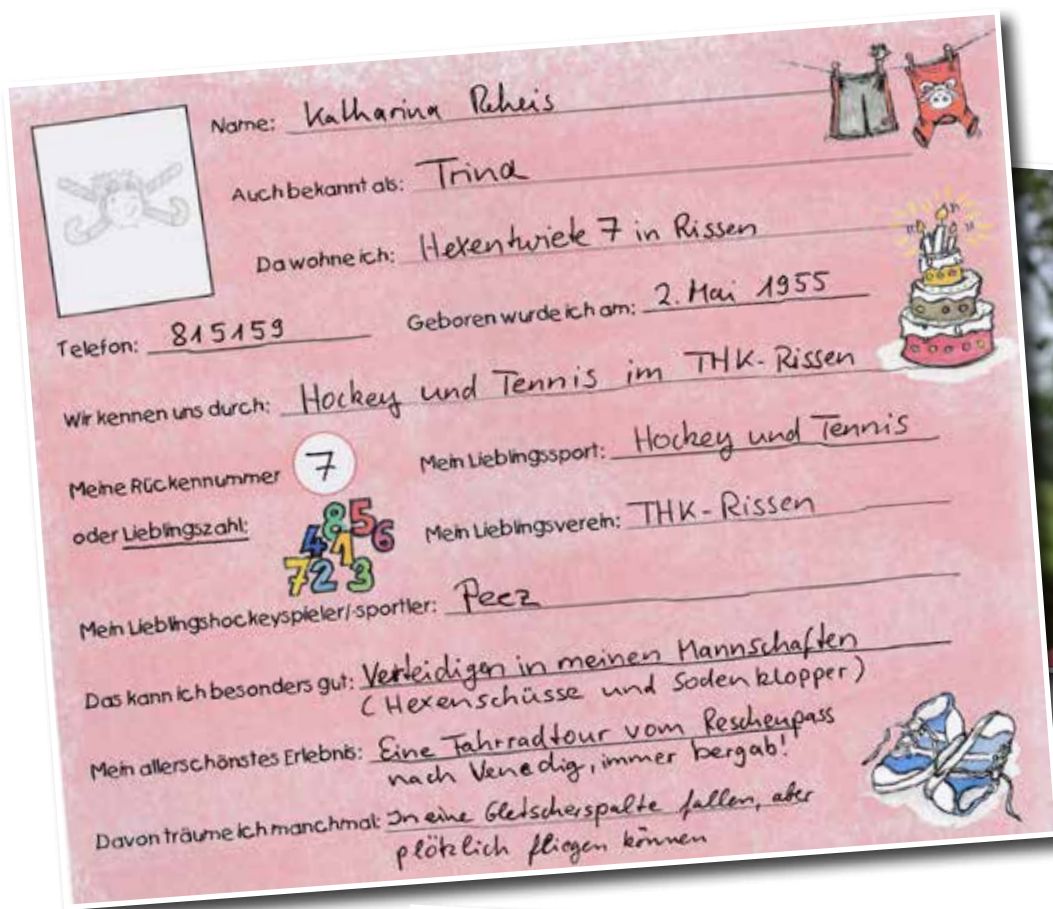 Name: Katharina Reheis
Auch bekannt als: Trina
Da wohne ich: Hexentwiete 7 in Rissen
Telefon: 815159 Geboren wurde ich am: 2. Mai 1955
Wir kennen uns durch: Hockey und Tennis im THK-Rissen
Meine Rückennummer 7 Mein Lieblingssport: Hockey und Tennis
oder Lieblingszahl: Mein Lieblingsverein: THK-Rissen
8 5 6 4 1 7 2 3
Mein Lieblingshockeyspieler/-sportler: Peez
Das kann ich besonders gut: Verteidigen in meinen Mannschaften
(Hexenschüsse und Sodenklopper)
Mein allerschönstes Erlebnis: Eine Fahrradtour vom Reschenpass
nach Venedig, immer bergab!
Davon träume ich manchmal: In eine Gletscherspalte fallen, aber
plötzlich fliegen können